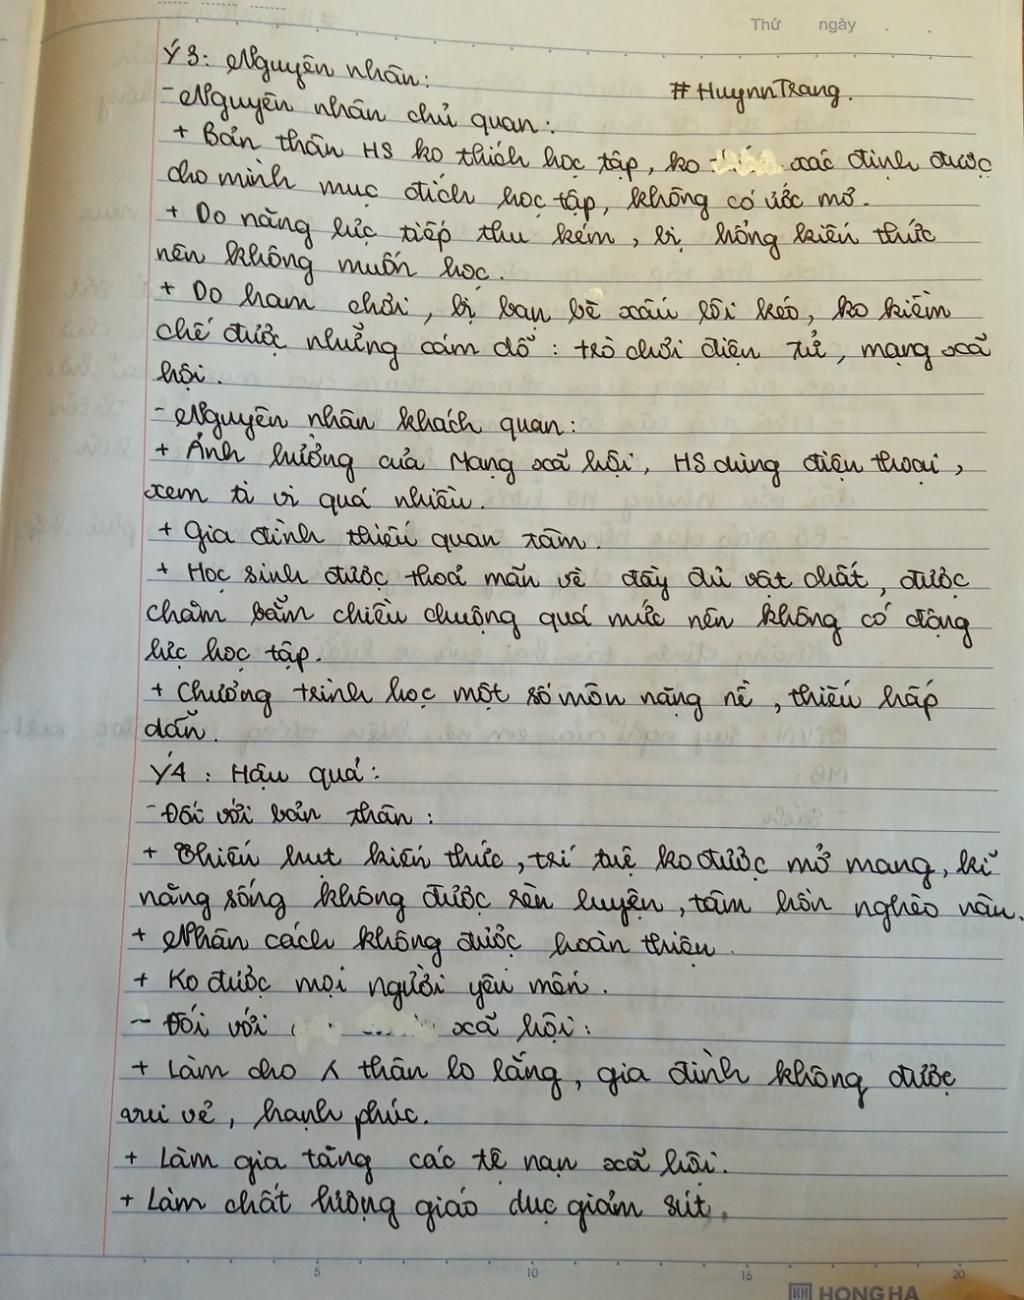 Thứ ngày
Ý3: Nguyên nhân:
#HuynnTrang.
- Nguyên nhân chủ quan:
+ Bản thân HS ko thích học tập, ko xác định được
cho mình mục đích học tập, không có ước mơ.
+ Do năng lực tiếp thu kém, bị hổng kiến thức
nên không muốn học.
+ Do ham chơi, bị bạn bè xấu lôi kéo, ko kiềm
chế được những cám dỗ: trò chơi điện tử, mạng xã
hội.
- Nguyên nhân khách quan:
+ Ảnh hưởng của Mạng xã hội, HS dùng điện thoại,
xem ti vi quá nhiều.
+ Gia đình thiếu quan tâm.
+ Học sinh được thoả mãn về đầy đủ vật chất, được
chăm bẵm chiều chuộng quá mức nên không có động
lực học tập.
+ Chương trình học một số môn nặng nề, thiếu hấp
dẫn.
Ý4: Hậu quả:
- Đối với bản thân:
+ Thiếu hụt kiến thức, trí tuệ ko được mở mang, kĩ
năng sống không được rèn luyện, tâm hồn nghèo nàn.
+ Nhân cách không được hoàn thiện.
+ Ko được mọi người yêu mến.
- Đối với xã hội:
+ Làm cho thân lo lắng, gia đình không được
vui vẻ, hạnh phúc.
+ Làm gia tăng các tệ nạn xã hội.
+ Làm chất lượng giáo dục giảm sút.
5 10 15 20
HH HONG HA